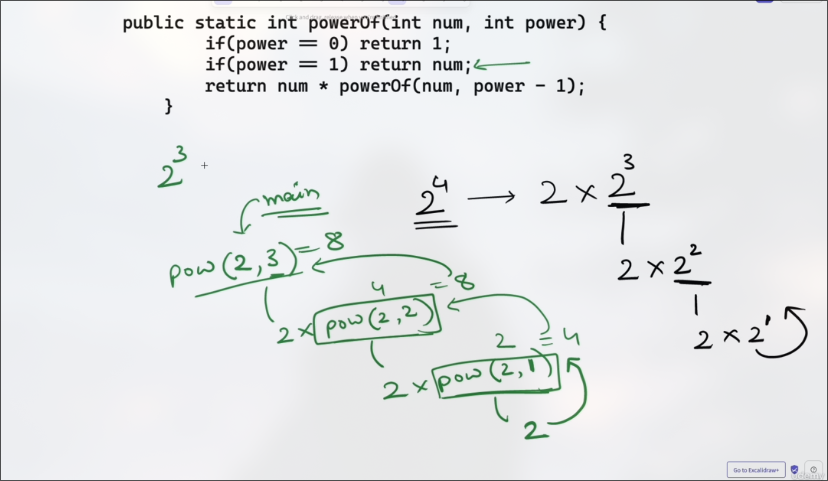 public static int powerOf(int num, int power) {
if(power == 0) return 1;
if(power == 1) return num;
return num * powerOf(num, power - 1);
}
2³
main
2⁴ → 2 × 2³
pow(2,3) = 8
2 × 2²
4 = 8
2 × pow(2,2)
2 × 2¹
2 = 4
2 × pow(2,1)
2
Go to Excalidraw+